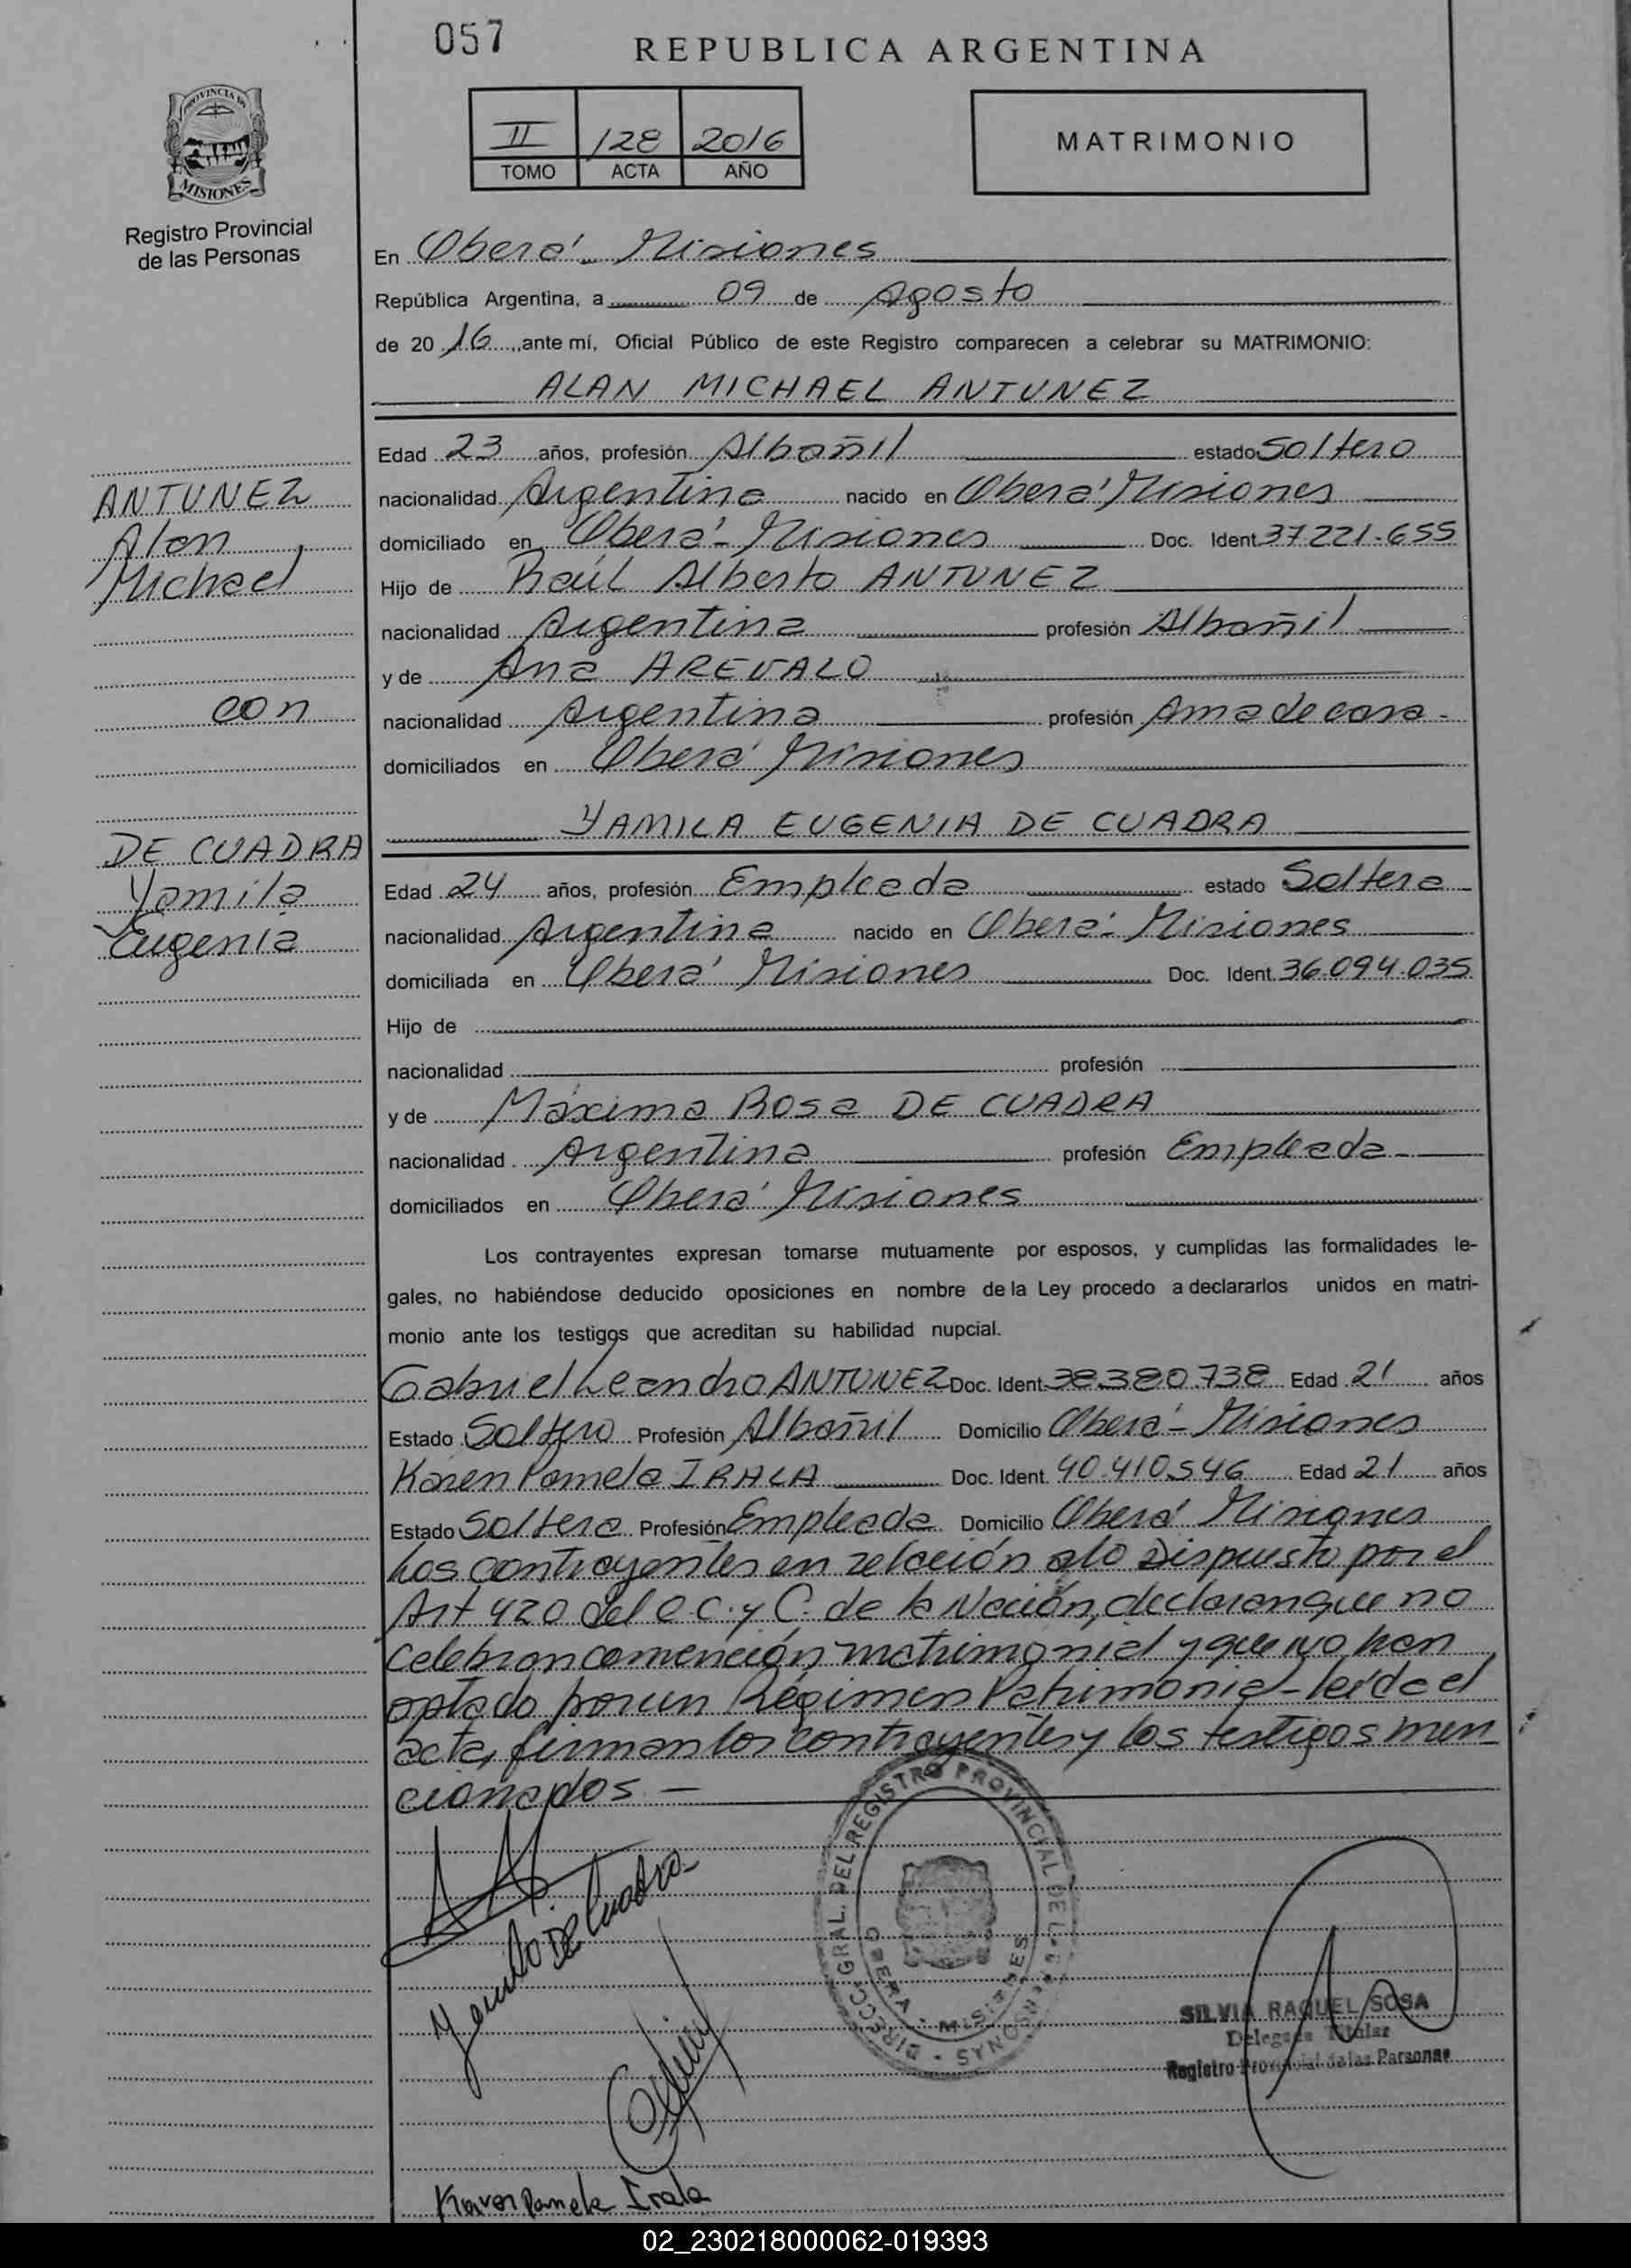 057
REPUBLICA ARGENTINA
PROVINCIA DE
MISIONES
Registro Provincial
de las Personas
II 128 2016
TOMO ACTA AÑO
MATRIMONIO
En Oberá - Misiones
República Argentina, a 09 de Agosto
de 20 16, ante mí, Oficial Público de este Registro comparecen a celebrar su MATRIMONIO:
ALAN MICHAEL ANTUNEZ
ANTUNEZ
Alan
Michael
con
DE CUADRA
Yamila
Eugenia
Edad 23 años, profesión Albañil estado Soltero
nacionalidad Argentina nacido en Oberá Misiones
domiciliado en Oberá - Misiones Doc. Ident 37.221.655
Hijo de Raúl Alberto ANTUNEZ
nacionalidad Argentina profesión Albañil
y de Ana AREVALO
nacionalidad Argentina profesión Ama de casa -
domiciliados en Oberá Misiones
YAMILA EUGENIA DE CUADRA
Edad 24 años, profesión Empleada estado Soltera
nacionalidad Argentina nacido en Oberá - Misiones
domiciliada en Oberá Misiones Doc. Ident. 36.094.035
Hijo de
nacionalidad profesión
y de Máxima Rosa DE CUADRA
nacionalidad Argentina profesión Empleada
domiciliados en Oberá Misiones
Los contrayentes expresan tomarse mutuamente por esposos, y cumplidas las formalidades le-
gales, no habiéndose deducido oposiciones en nombre de la Ley procedo a declararlos unidos en matri-
monio ante los testigos que acreditan su habilidad nupcial.
Gabriel Leandro ANTUNEZ Doc. Ident. 38.380.738 Edad 21 años
Estado Soltero Profesión Albañil Domicilio Oberá - Misiones
Karen Pamela IRALA Doc. Ident. 40.410.546 Edad 21 años
Estado Soltera Profesión Empleada Domicilio Oberá Misiones
Los contrayentes en relación a lo Dispuesto por el
Art 420 del C.C. y C. de la Nación, declaran que no
celebran convención matrimonial y que no han
optado por un Régimen Patrimonial - leída el
acta, firman los contrayentes y los testigos men
cionados. -
Yamila De Cuadra
DIRECC. GRAL. DEL REGISTRO PROVINCIAL DE LAS PERSONAS
OBERA - MISIONES
SILVIA RAQUEL SOSA
Delegada Titular
Registro Provincial de las Personas
Karen Pamela Irala
02_230218000062-019393